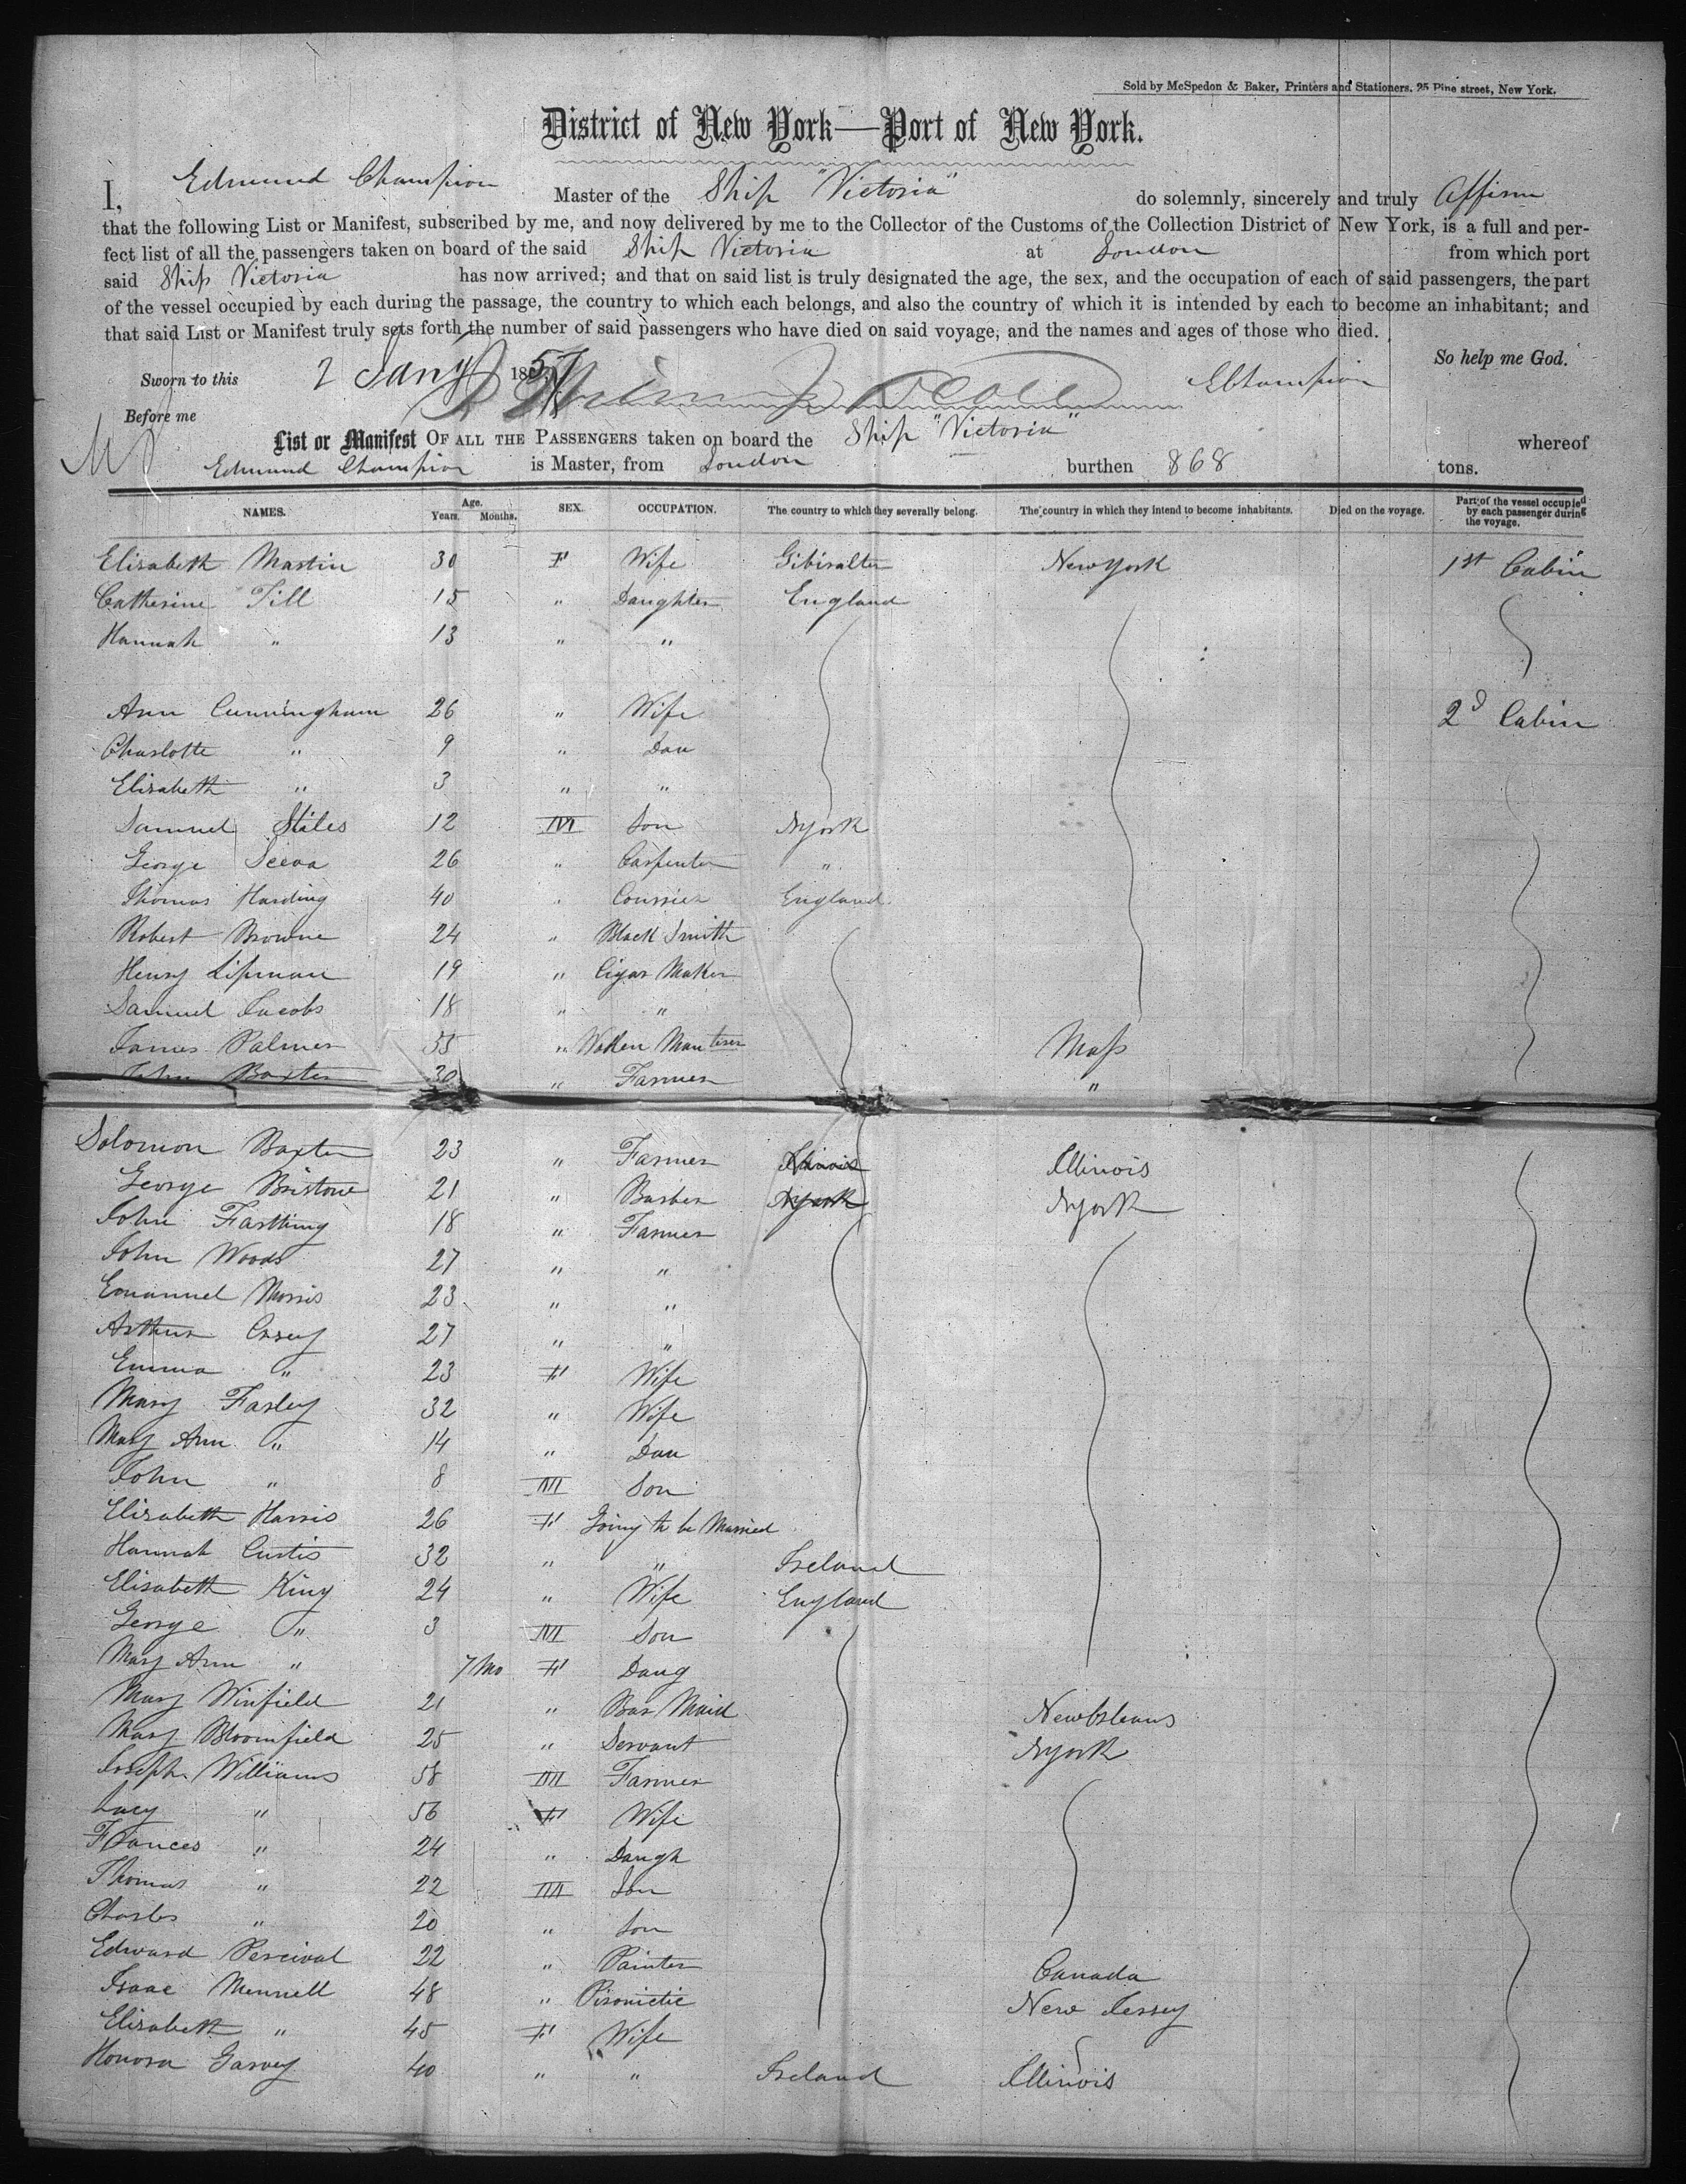 Sold by McSpedon & Baker, Printers and Stationers, 25 Pine street, New York.
District of New York—Port of New York.
I, Edmund Champion Master of the Ship "Victoria" do solemnly, sincerely and truly Affirm
that the following List or Manifest, subscribed by me, and now delivered by me to the Collector of the Customs of the Collection District of New York, is a full and per-
fect list of all the passengers taken on board of the said Ship Victoria at London from which port
said Ship Victoria has now arrived; and that on said list is truly designated the age, the sex, and the occupation of each of said passengers, the part
of the vessel occupied by each during the passage, the country to which each belongs, and also the country of which it is intended by each to become an inhabitant; and
that said List or Manifest truly sets forth the number of said passengers who have died on said voyage, and the names and ages of those who died.
So help me God.
Sworn to this 2 Jany 1857 EChampion
Before me
List or Manifest OF ALL THE PASSENGERS taken on board the Ship "Victoria" whereof
Edmund Champion is Master, from London burthen 868 tons.
NAMES. Age. Years. Months. SEX. OCCUPATION. The country to which they severally belong. The country in which they intend to become inhabitants. Died on the voyage. Part of the vessel occupied by each passenger during the voyage.
Elisabeth Martin 30 F Wife Gibiralter New York 1st Cabin
Catherine Till 15 " Daughter England
Hannah " 13 " "
Ann Cunningham 26 " Wife 2d Cabin
Charlotte " 9 " Dau
Elisabeth " 3 " "
Samuel Stiles 12 M Son NYork
George 26 " Carpenter "
Thomas Harding 40 " Courrier England
Robert Browne 24 " Black Smith
Henry Lipman 19 " Cigar Maker
Samuel Jacobs 18 " "
James Palmer 55 " Mass
John Baxter 30 " Farmer "
Solomon Baxter 23 " Farmer Illinois Illinois
George Bristowe 21 " Barber NYork NYork
John Farthing 18 " Farmer
John Woods 27 " "
Emanuel Morris 23 " "
Arthur 27 " "
Emma " 23 F Wife
Mary Farley 32 " Wife
Mary Ann " 14 " Dau
John " 8 M Son
Elizabeth Harris 26 F Going to be Married
Hannah Curtis 32 " " Ireland
Elisabeth King 24 " Wife England
George " 3 M Son
Mary Ann " 7 Mo F Daug
Mary Winfield 21 " Bar Maid New Orleans
Mary Bloomfield 25 " Servant NYork
Joseph Williams 58 M Farmer
Lucy " 56 F Wife
Frances " 24 " Daugh
Thomas " 22 M Son
Charles " 20 " Son
Edward Percival 22 " Painter Canada
Isaac Mennell 48 " New Jersey
Elisabeth " 45 F Wife
Honora Garvey 40 " " Ireland Illinois